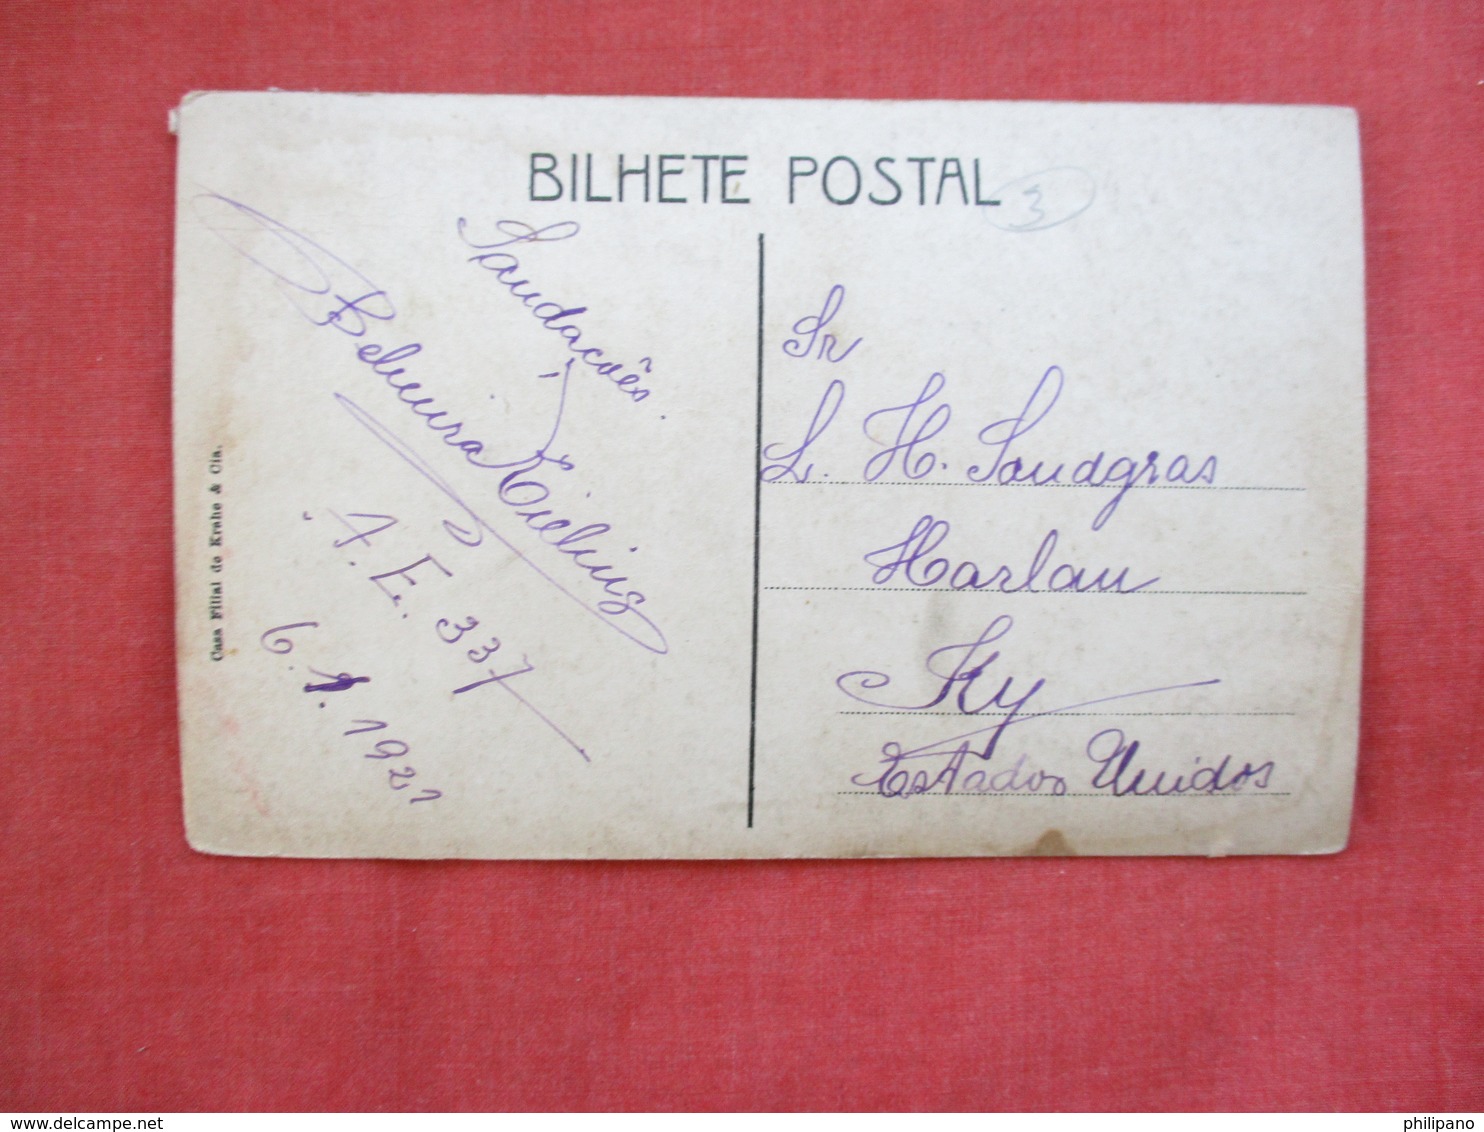 BILHETE POSTAL
3
Saudacoês.
A. E. 337
6. 1. 1921
Casa Filial de Krahe & Cia.
Sr
L. H. Soudgras
Harlan
Ky
Estados Unidos
delcampe.net
philipano